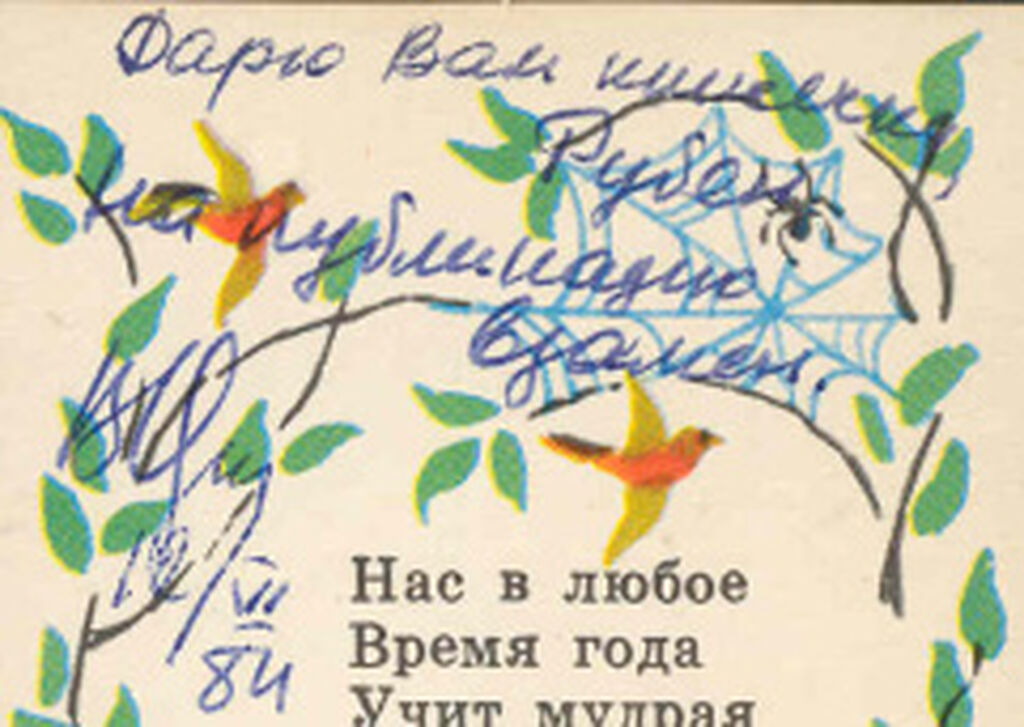 Дарю Вам книжечку,
Рубен
на публикацию
взамен.
VII
84
Нас в любое
Время года
Учит мудрая